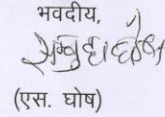 भवदीय,
(एस. घोष)